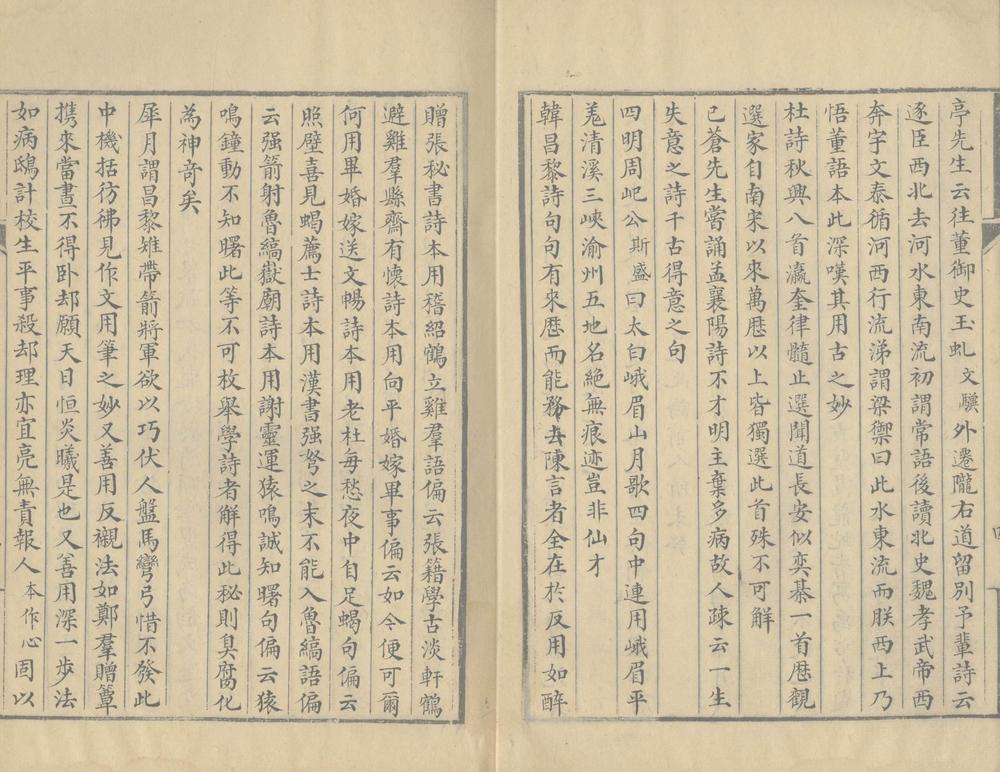 亭先生云往董御史玉虬文驥外遷隴右道留別予輩詩云
逐臣西北去河水東南流初謂常語後讀北史魏孝武帝西
奔宇文泰循河西行流涕謂梁禦曰此水東流而朕西上乃
悟董語本此深嘆其用古之妙
杜詩秋興八首瀛奎律髓止選聞道長安似奕棊一首歴觀
選家自南宋以來萬歴以上皆獨選此首殊不可解
已蒼先生嘗誦孟襄陽詩不才明主棄多病故人疎云一生
失意之詩千古得意之句
四明周屺公斯盛曰太白峨眉山月歌四句中連用峨眉平
羌清溪三峽渝州五地名絶無痕迹豈非仙才
韓昌黎詩句句有來歴而能務去陳言者全在於反用如醉
贈張秘書詩本用嵇紹鶴立雞羣語偏云張籍學古淡軒鶴
避雞羣縣齋有懷詩本用向平婚嫁畢事偏云如今便可爾
何用畢婚嫁送文暢詩本用老杜每愁夜中自足蝎句偏云
照壁喜見蝎薦士詩本用漢書强弩之末不能入魯縞語偏
云强箭射魯縞嶽廟詩本用謝靈運猿鳴誠知曙句偏云猿
鳴鐘動不知曙此等不可枚舉學詩者解得此秘則臭腐化
為神奇矣
犀月謂昌黎雉帶箭將軍欲以巧伏人盤馬彎弓惜不發此
中機括彷彿見作文用筆之妙又善用反襯法如鄭羣贈簟
携來當晝不得卧却願天日恒炎曦是也又善用深一步法
如病鴟計校生平事殺却理亦宜亮無責報人本作心固以